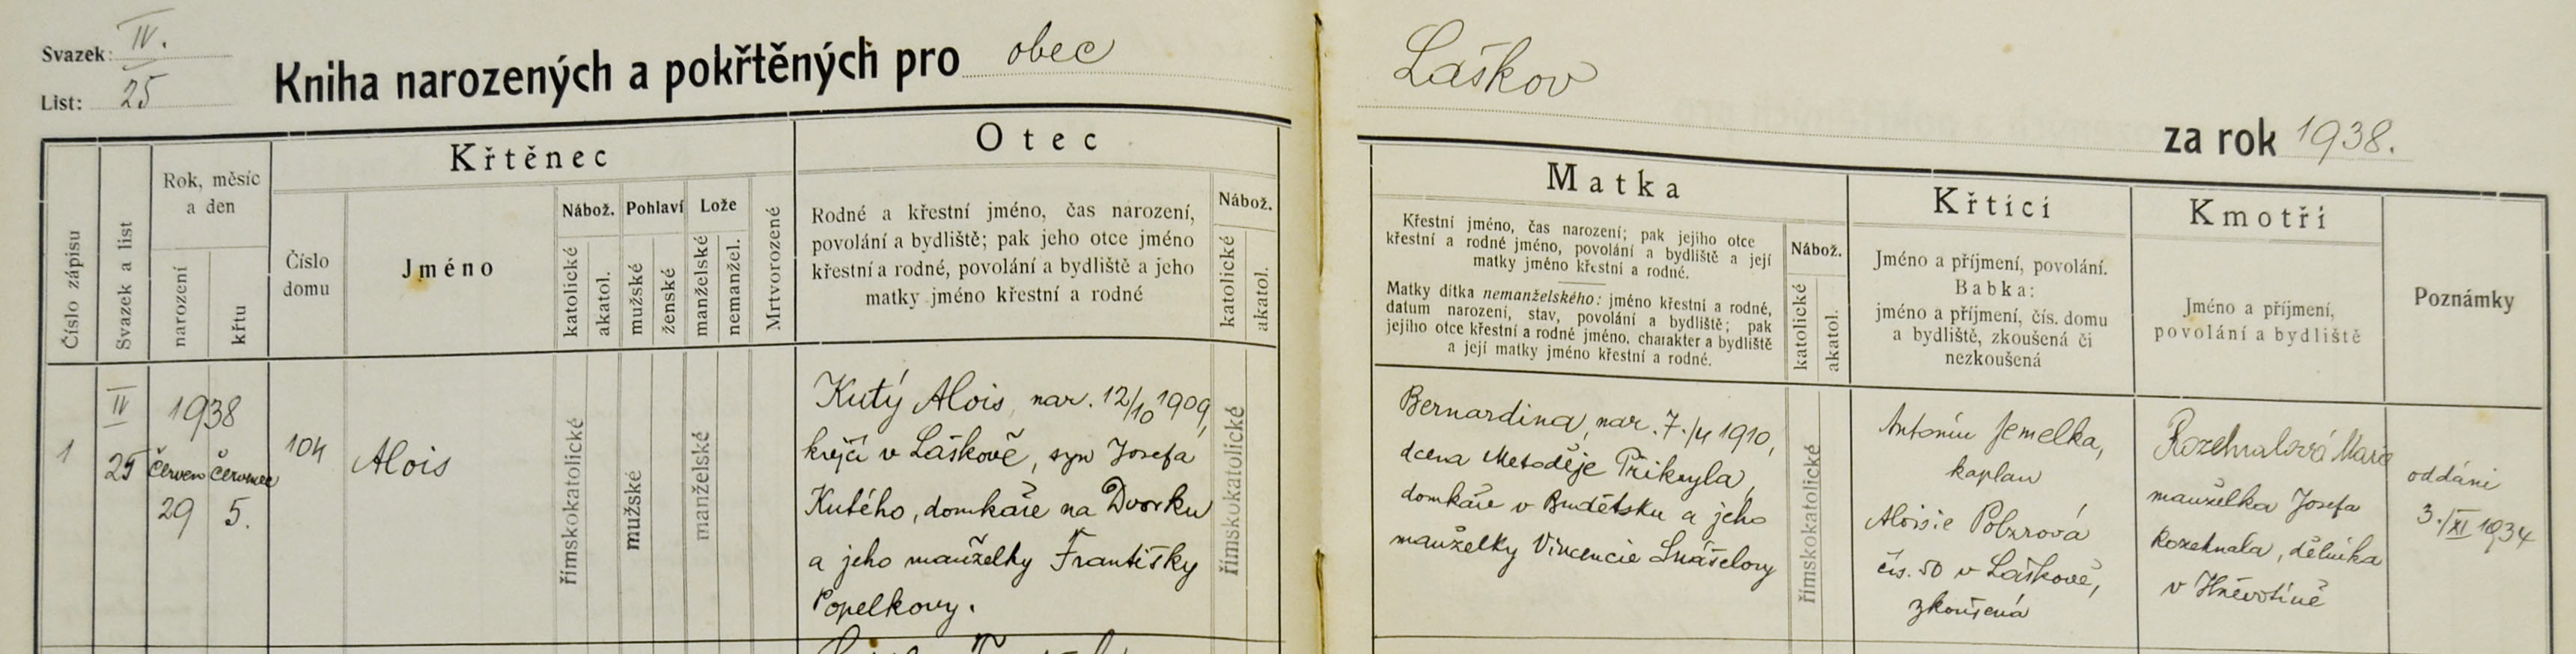 Svazek: IV.
List: 25
Kniha narozených a pokřtěných pro obec Láškov
za rok 1938.
Číslo zápisu
Svazek a list
Rok, měsíc
a den
narození
křtu
Křtěnec
Číslo
domu
Jméno
Nábož.
katolické
akatol.
Pohlaví
mužské
ženské
Lože
manželské
nemanžel.
Mrtvorozené
Otec
Rodné a křestní jméno, čas narození,
povolání a bydliště; pak jeho otce jméno
křestní a rodné, povolání a bydliště a jeho
matky jméno křestní a rodné
Nábož.
katolické
akatol.
Matka
Křestní jméno, čas narození; pak jejího otce
křestní a rodné jméno, povolání a bydliště a její
matky jméno křestní a rodné.
Matky dítka nemanželského: jméno křestní a rodné,
datum narození, stav, povolání a bydliště; pak
jejího otce křestní a rodné jméno, charakter a bydliště
a její matky jméno křestní a rodné.
Nábož.
katolické
akatol.
Křtící
Jméno a příjmení, povolání.
Babka:
jméno a příjmení, čís. domu
a bydliště, zkoušená či
nezkoušená
Kmotři
Jméno a příjmení,
povolání a bydliště
Poznámky
1
IV
25
1938
červen červenec
29 5.
104
Alois
římskokatolické
mužské
manželské
Kutý Alois, nar. 12/10 1909,
krejčí v Láškově, syn Josefa
Kutého, domkáře na Dvorku
a jeho manželky Františky
Popelkovy.
římskokatolické
Bernardina, nar. 7./4 1910,
dcera Metoděje Přikryla,
domkáře v Budětsku a jeho
manželky Vincencie Snášelovy
římskokatolické
Antonín Jemelka,
kaplan
Aloisie Polzrová
čís. 50 v Láškově,
zkoušená
Rozehnalová Marie
manželka Josefa
Rozehnala, dělníka
v Hněvotíně
oddáni
3./XI 1934